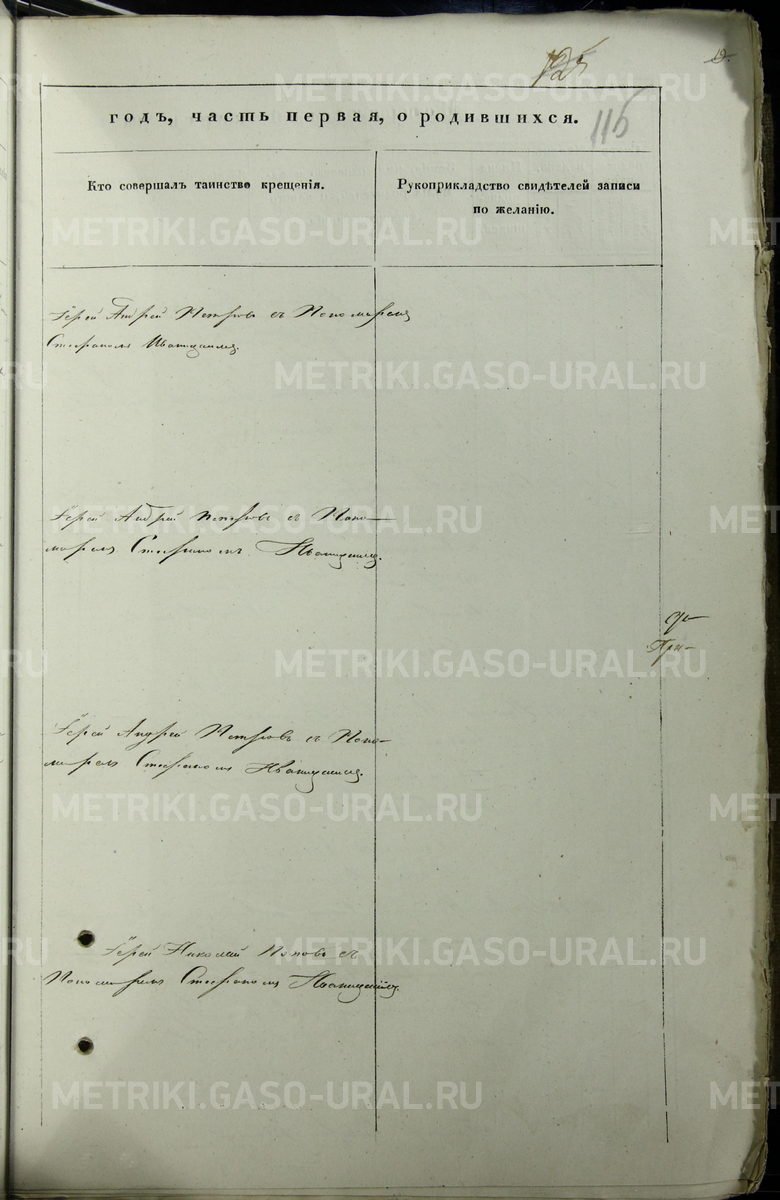 125
19.
115
годъ, часть первая, о родившихся.
Кто совершалъ таинство крещенія.
Рукоприкладство свидѣтелей записи
по желанію.
Іерей Андрей Петровъ съ Пономаремъ
Стефаномъ
Іерей Андрей Петровъ съ Поно-
маремъ Стефаномъ
Іерей Андрей Петровъ съ Поно-
маремъ Стефаномъ
Іерей Николай Поповъ съ
Пономаремъ Стефаномъ
При-
METRIKI.GASO-URAL.RU